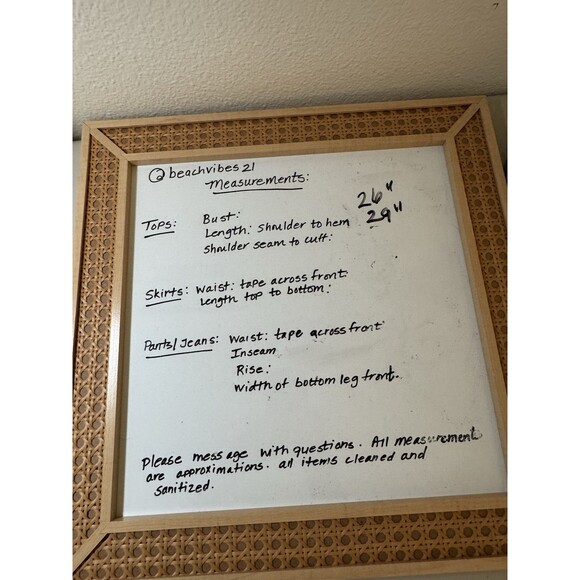 @beachvibes21
Measurements:
Tops: Bust: 26"
Length: Shoulder to hem 29"
Shoulder seam to cuff:
Skirts: Waist: tape across front:
Length top to bottom:
Pants/Jeans: Waist: tape across front
Inseam
Rise:
Width of bottom leg front.
Please message with questions. All measurement
are approximations. all items cleaned and
sanitized.